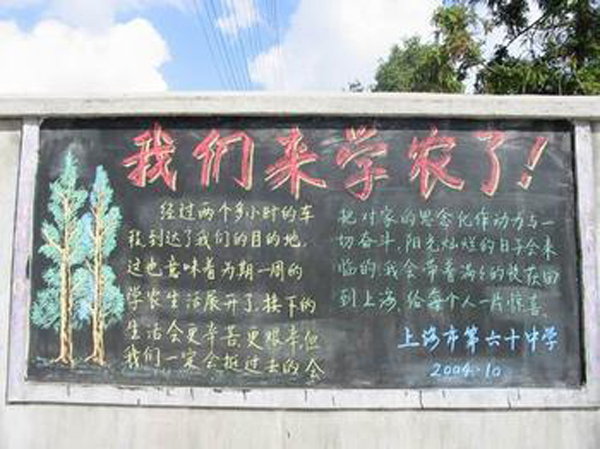 我们来学农了!
经过两个多小时的车
段到达了我们的目的地,
这也意味着为期一周的
学农生活展开了.接下的
生活会更辛苦,更艰辛,但
我们一定会挺过去的,会
把对家的思念化作动力与一
切奋斗,阳光灿烂的日子会来
临的,我会带着满满的收获回
到上海,给每个人一片惊喜.
上海市第六十中学
2004.10